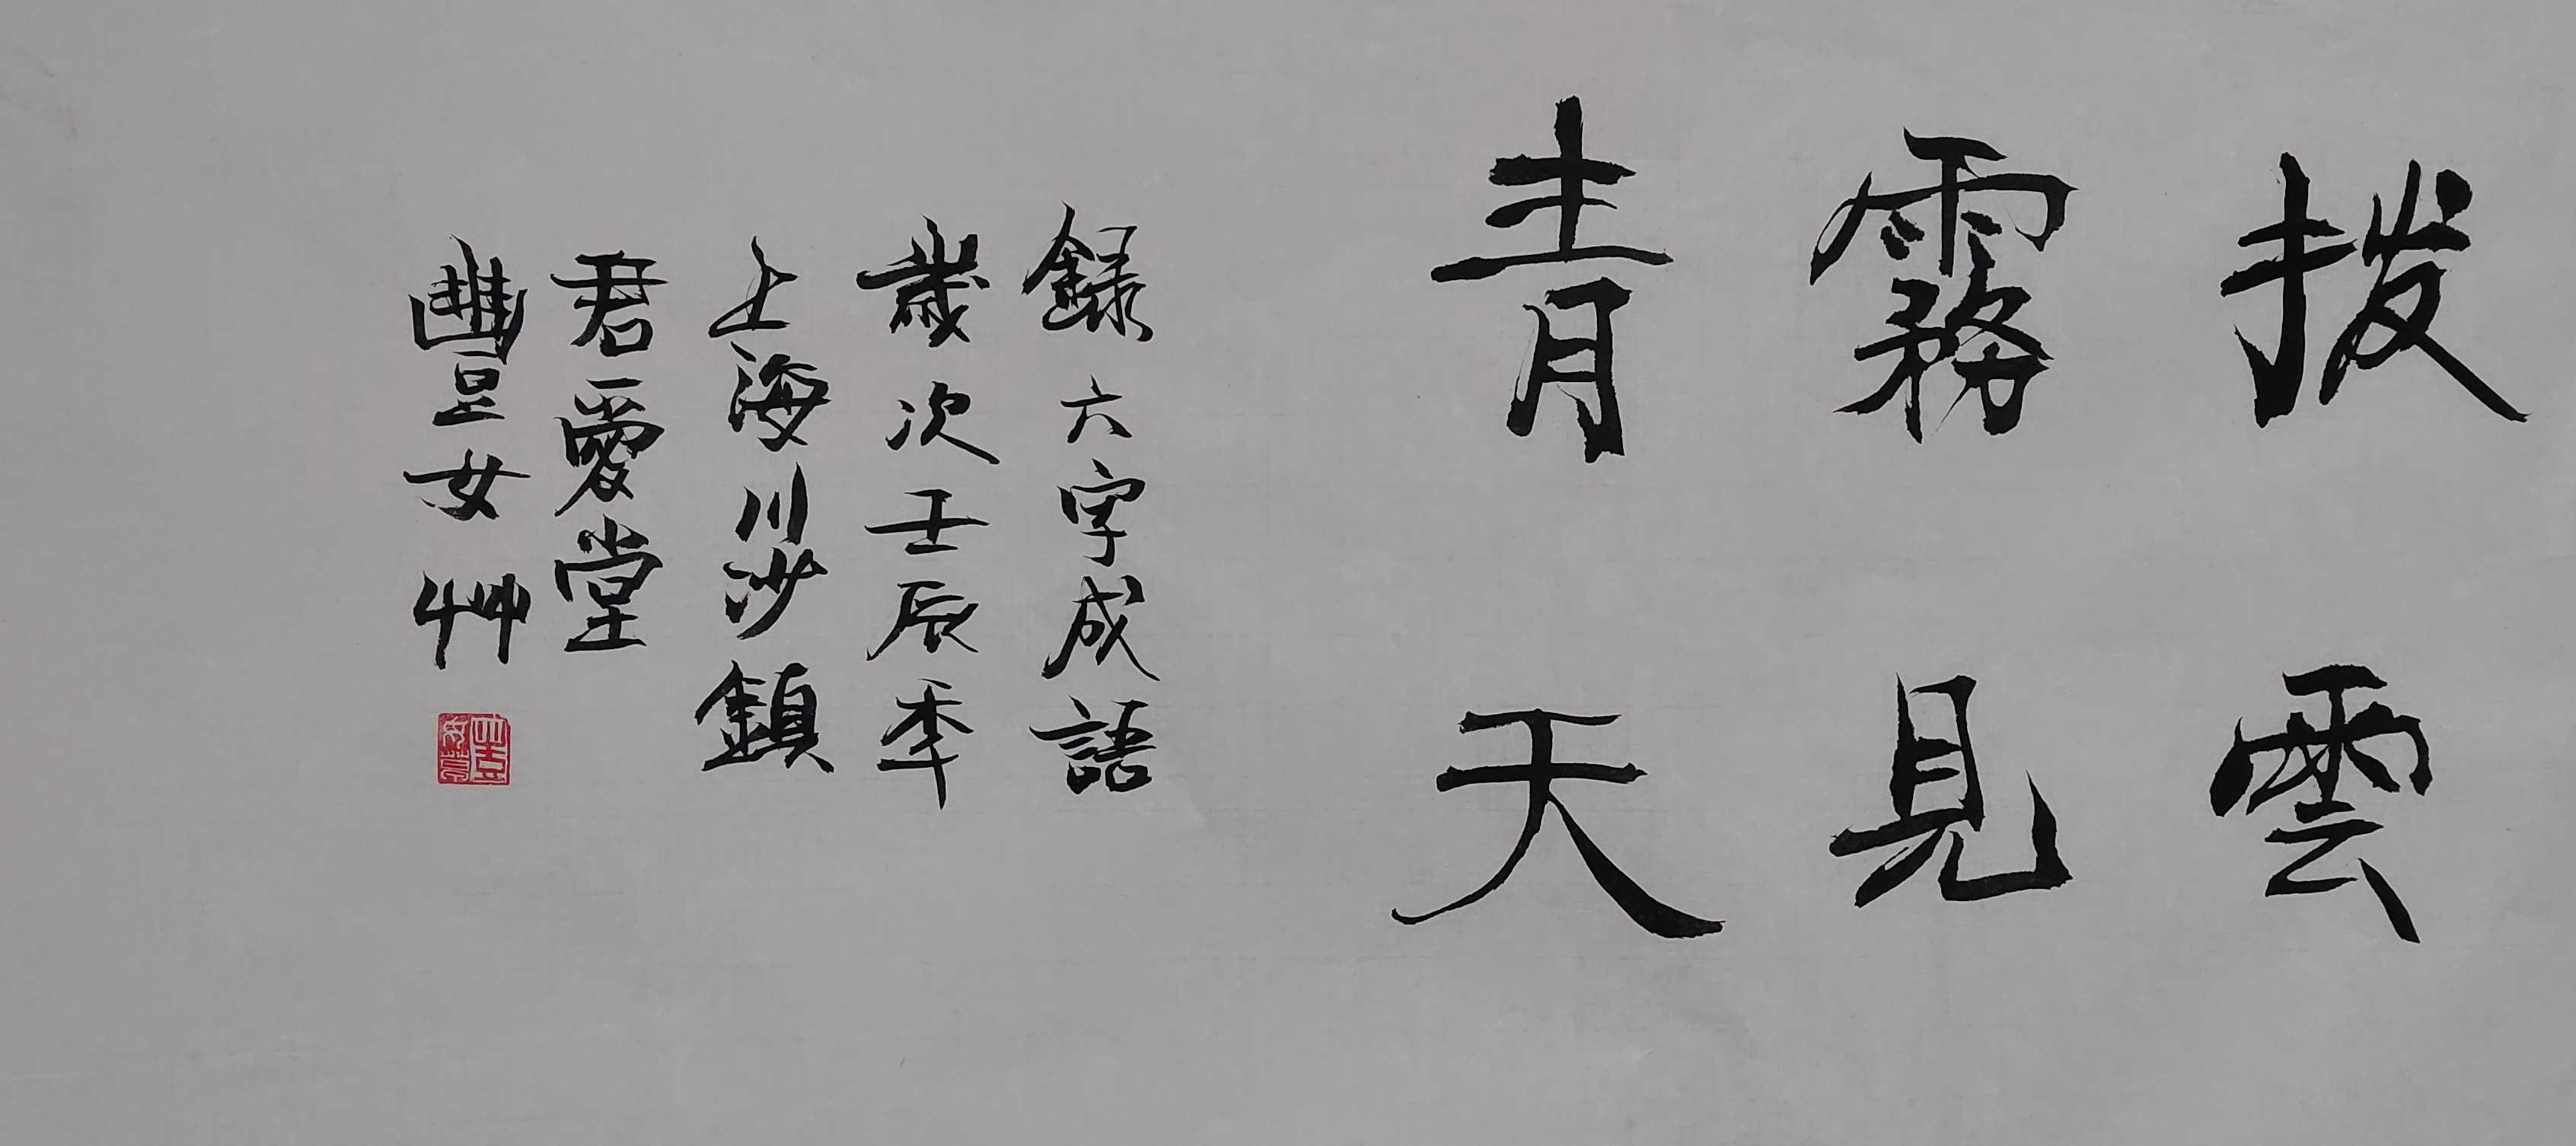 拨雲
霧見
青天
録六字成語
歲次壬辰季
上海川沙鎮
君愛堂
豐女艸